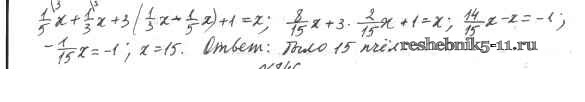 1/5 x + 1/3 x + 3 (1/3 x - 1/5 x) + 1 = x; 8/15 x + 3 · 2/15 x + 1 = x; 14/15 x - x = -1;
- 1/15 x = -1; x = 15. Ответ: было 15 пчёл
reshebnik5-11.ru